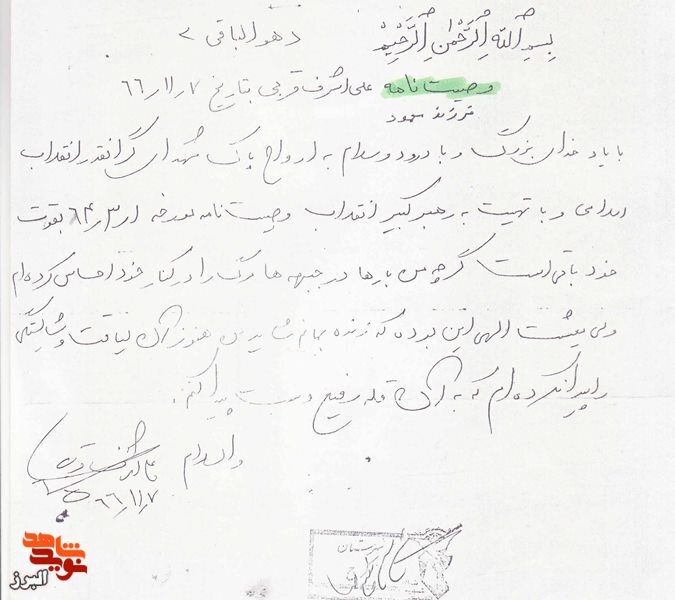 بسم الله الرحمن الرحیم
وهو الباقی
وصیت نامه علی اشرف قربی بتاریخ ۶۶/۱/۷
فرزند محمود
با یاد خدای بزرگ و با درود و سلام به ارواح پاک شهدای گرانقدر انقلاب
اسلامی و با تهیت به رهبر کبیر انقلاب وصیت نامه مورخه ۶۴/۳/۱ بقوت
خود باقی است گرچه من بارها در جبهه ها مرگ را در کنار خود احساس کرده ام
ولی مشیت الهی این بوده که زنده بمانم شاید من هنوز آن لیاقت و شایستگی
را پیدا نکرده ام که به آن قله رفیع دست پیدا کنم.
والسلام
علی اشرف
۶۶/۱/۷
نوید شاهد
البرز